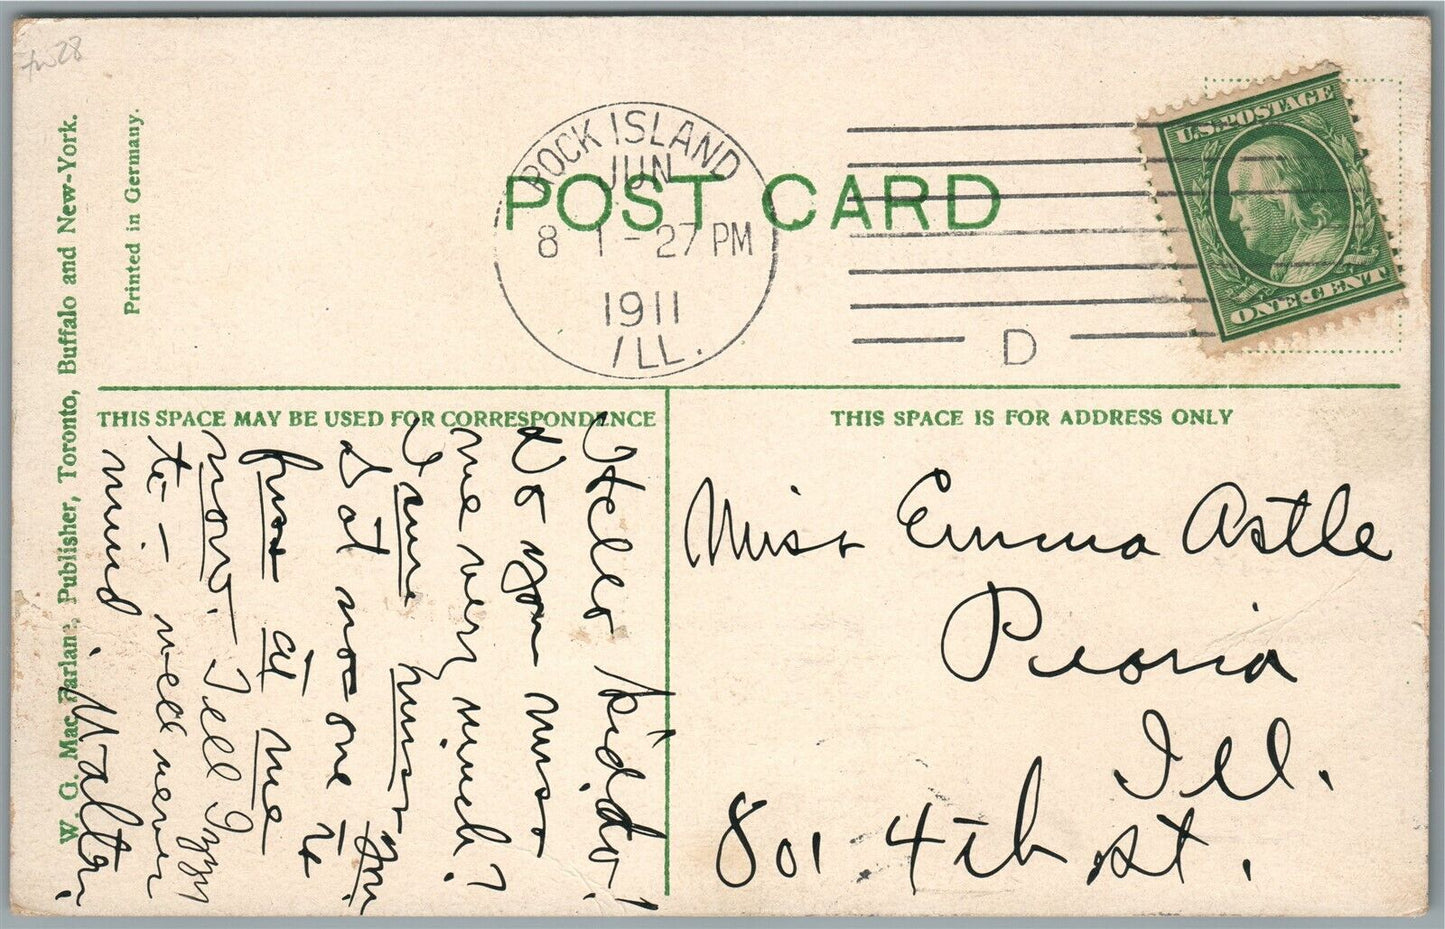 W. G. MacFarlane, Publisher, Toronto, Buffalo and New-York.
Printed in Germany.
POST CARD
ROCK ISLAND
JUN
8 1-27 PM
1911
ILL.
D
U.S. POSTAGE
ONE CENT
THIS SPACE MAY BE USED FOR CORRESPONDENCE
THIS SPACE IS FOR ADDRESS ONLY
Hello Kiddo!
Do you miss
me very much?
I sure miss you.
Dot no one to
fuss at me
now. Tell Izzy
to - well never
mind. Walton.
Miss Emma Astle
Peoria
Ill.
801-4th st.